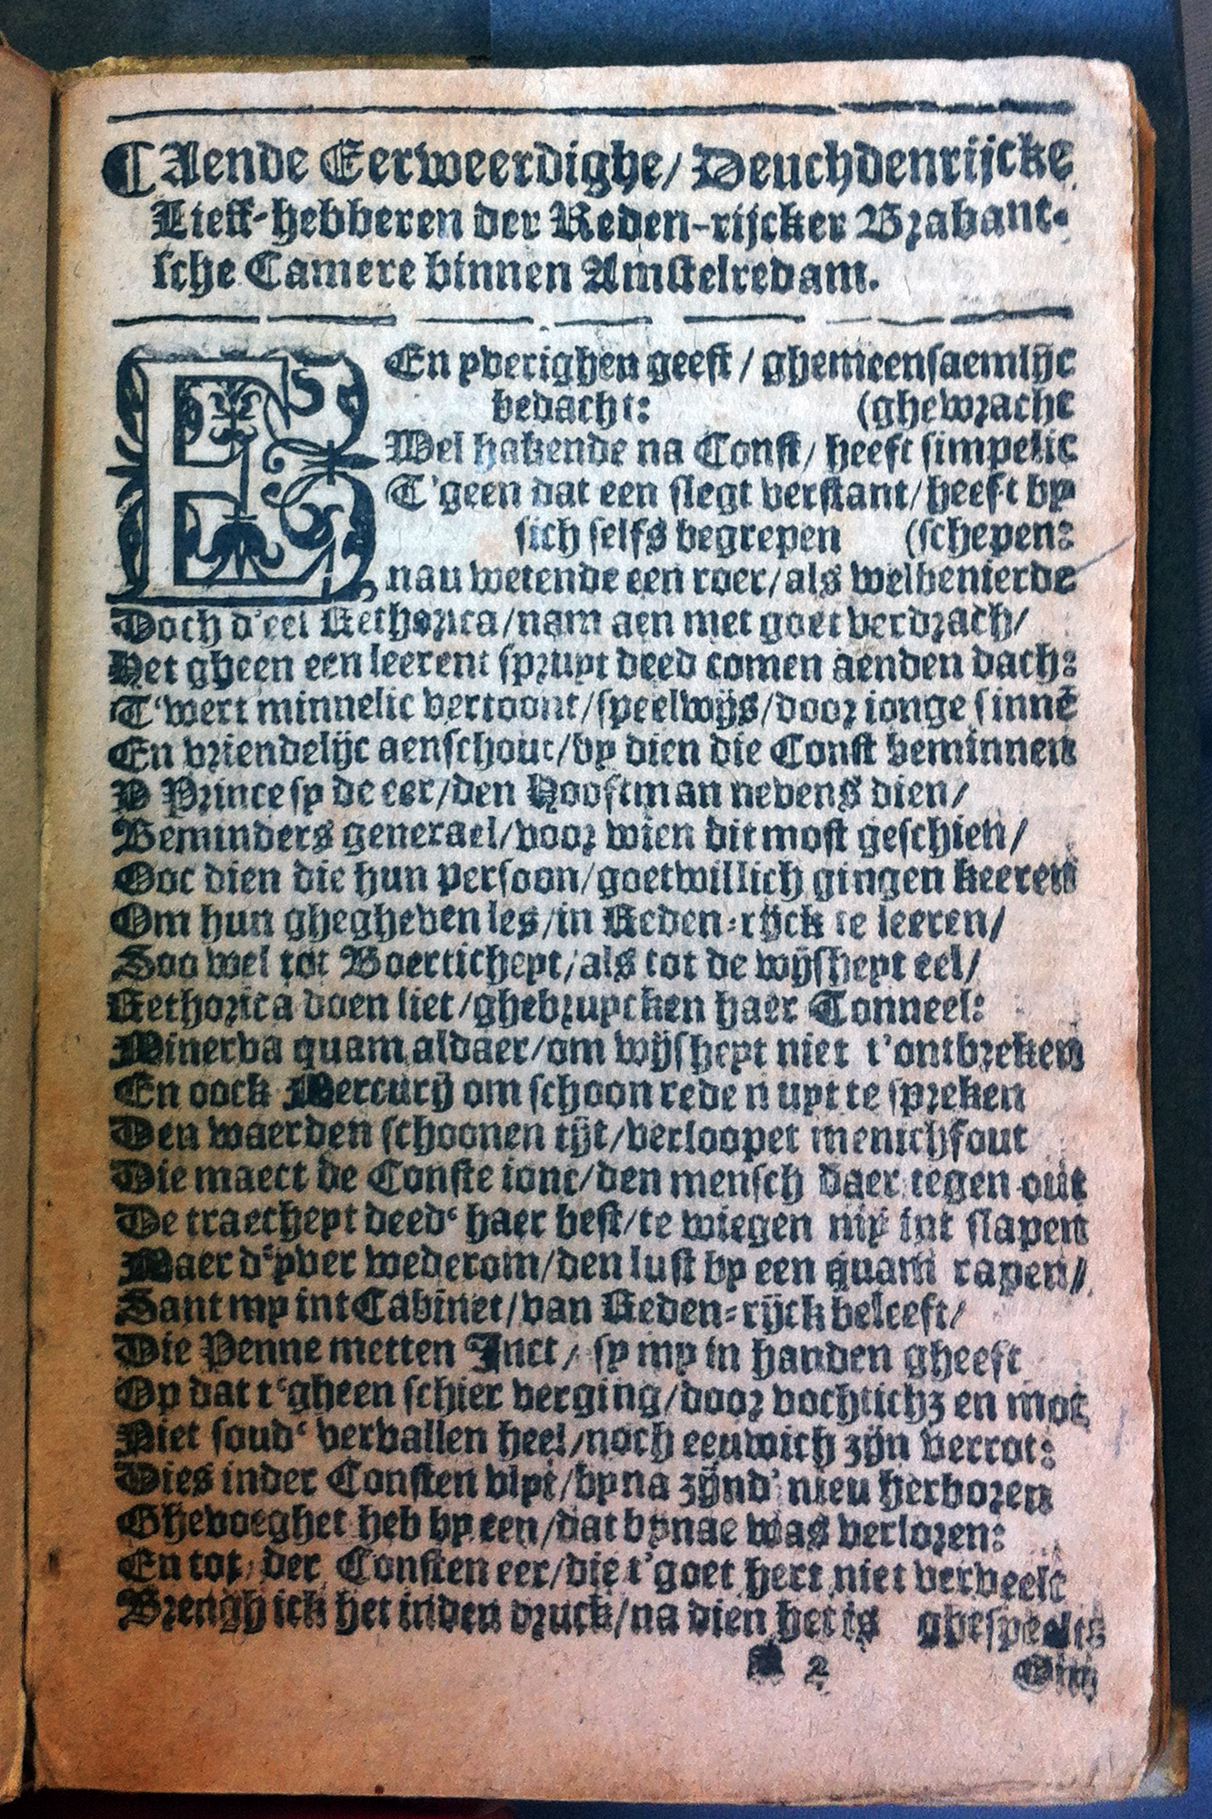 Aende Eerweerdighe/ Deuchdenrijcke
Lieff-hebberen der Reden-rijcker Brabant-
sche Camere binnen Amstelredam.
EEn yverighen geest / ghemeensaemlijc
bedacht: (ghewracht
Wel hakende na Const/ heeft simpelic
T'geen dat een slegt verstant/ heeft by
sich selfs begrepen (schepen:
nau wetende een roer/als welbenierde
Doch d'eel Rethorica/nam aen met goet verdrach/
Het gheen een leerent spruyt deed comen aenden dach:
T'wert minnelic vertoont/speelwijs/door ionge sinnē
En vriendelijc aenschout/by dien die Const beminnen
D Prince sy de eer/den Hooftman nevens dien/
Beminders generael/voor wien dit most geschien/
Ooc dien die hun persoon/goetwillich gingen keeren
Om hun ghegheven les/in Reden-rijck te leeren/
Soo wel tot Boerticheyt/als tot de wijsheyt eel/
Rethorica doen liet/ghebruycken haer Tonneel:
Minerva quam aldaer/om wijsheyt niet t'ontbreken
En oock Mercurij om schoon reden uyt te spreken
Den waerden schoonen tijt/verloopet menichfout
Die maect de Conste ionc/den mensch daer tegen out
De traecheyt deed' haer best/te wiegen mij int slapen
Maer d'yver wederom/den lust by een quam rapen/
Sant my int Cabinet/van Reden-rijck beleeft/
Die Penne metten Inct/ sy my in handen gheeft
Op dat t'gheen schier verging/door vochtichz en mot
Niet soud' vervallen heel/noch eeuwich zijn verrot:
Dies inder Consten vlyt/byna zijnd' nieu herboren
Ghevoeghet heb by een/dat bynae was verloren:
En tot der Consten eer/die t'goet hert niet verveelt
Brengh ick het inden druck/na dien het is ghespeelt
A 2